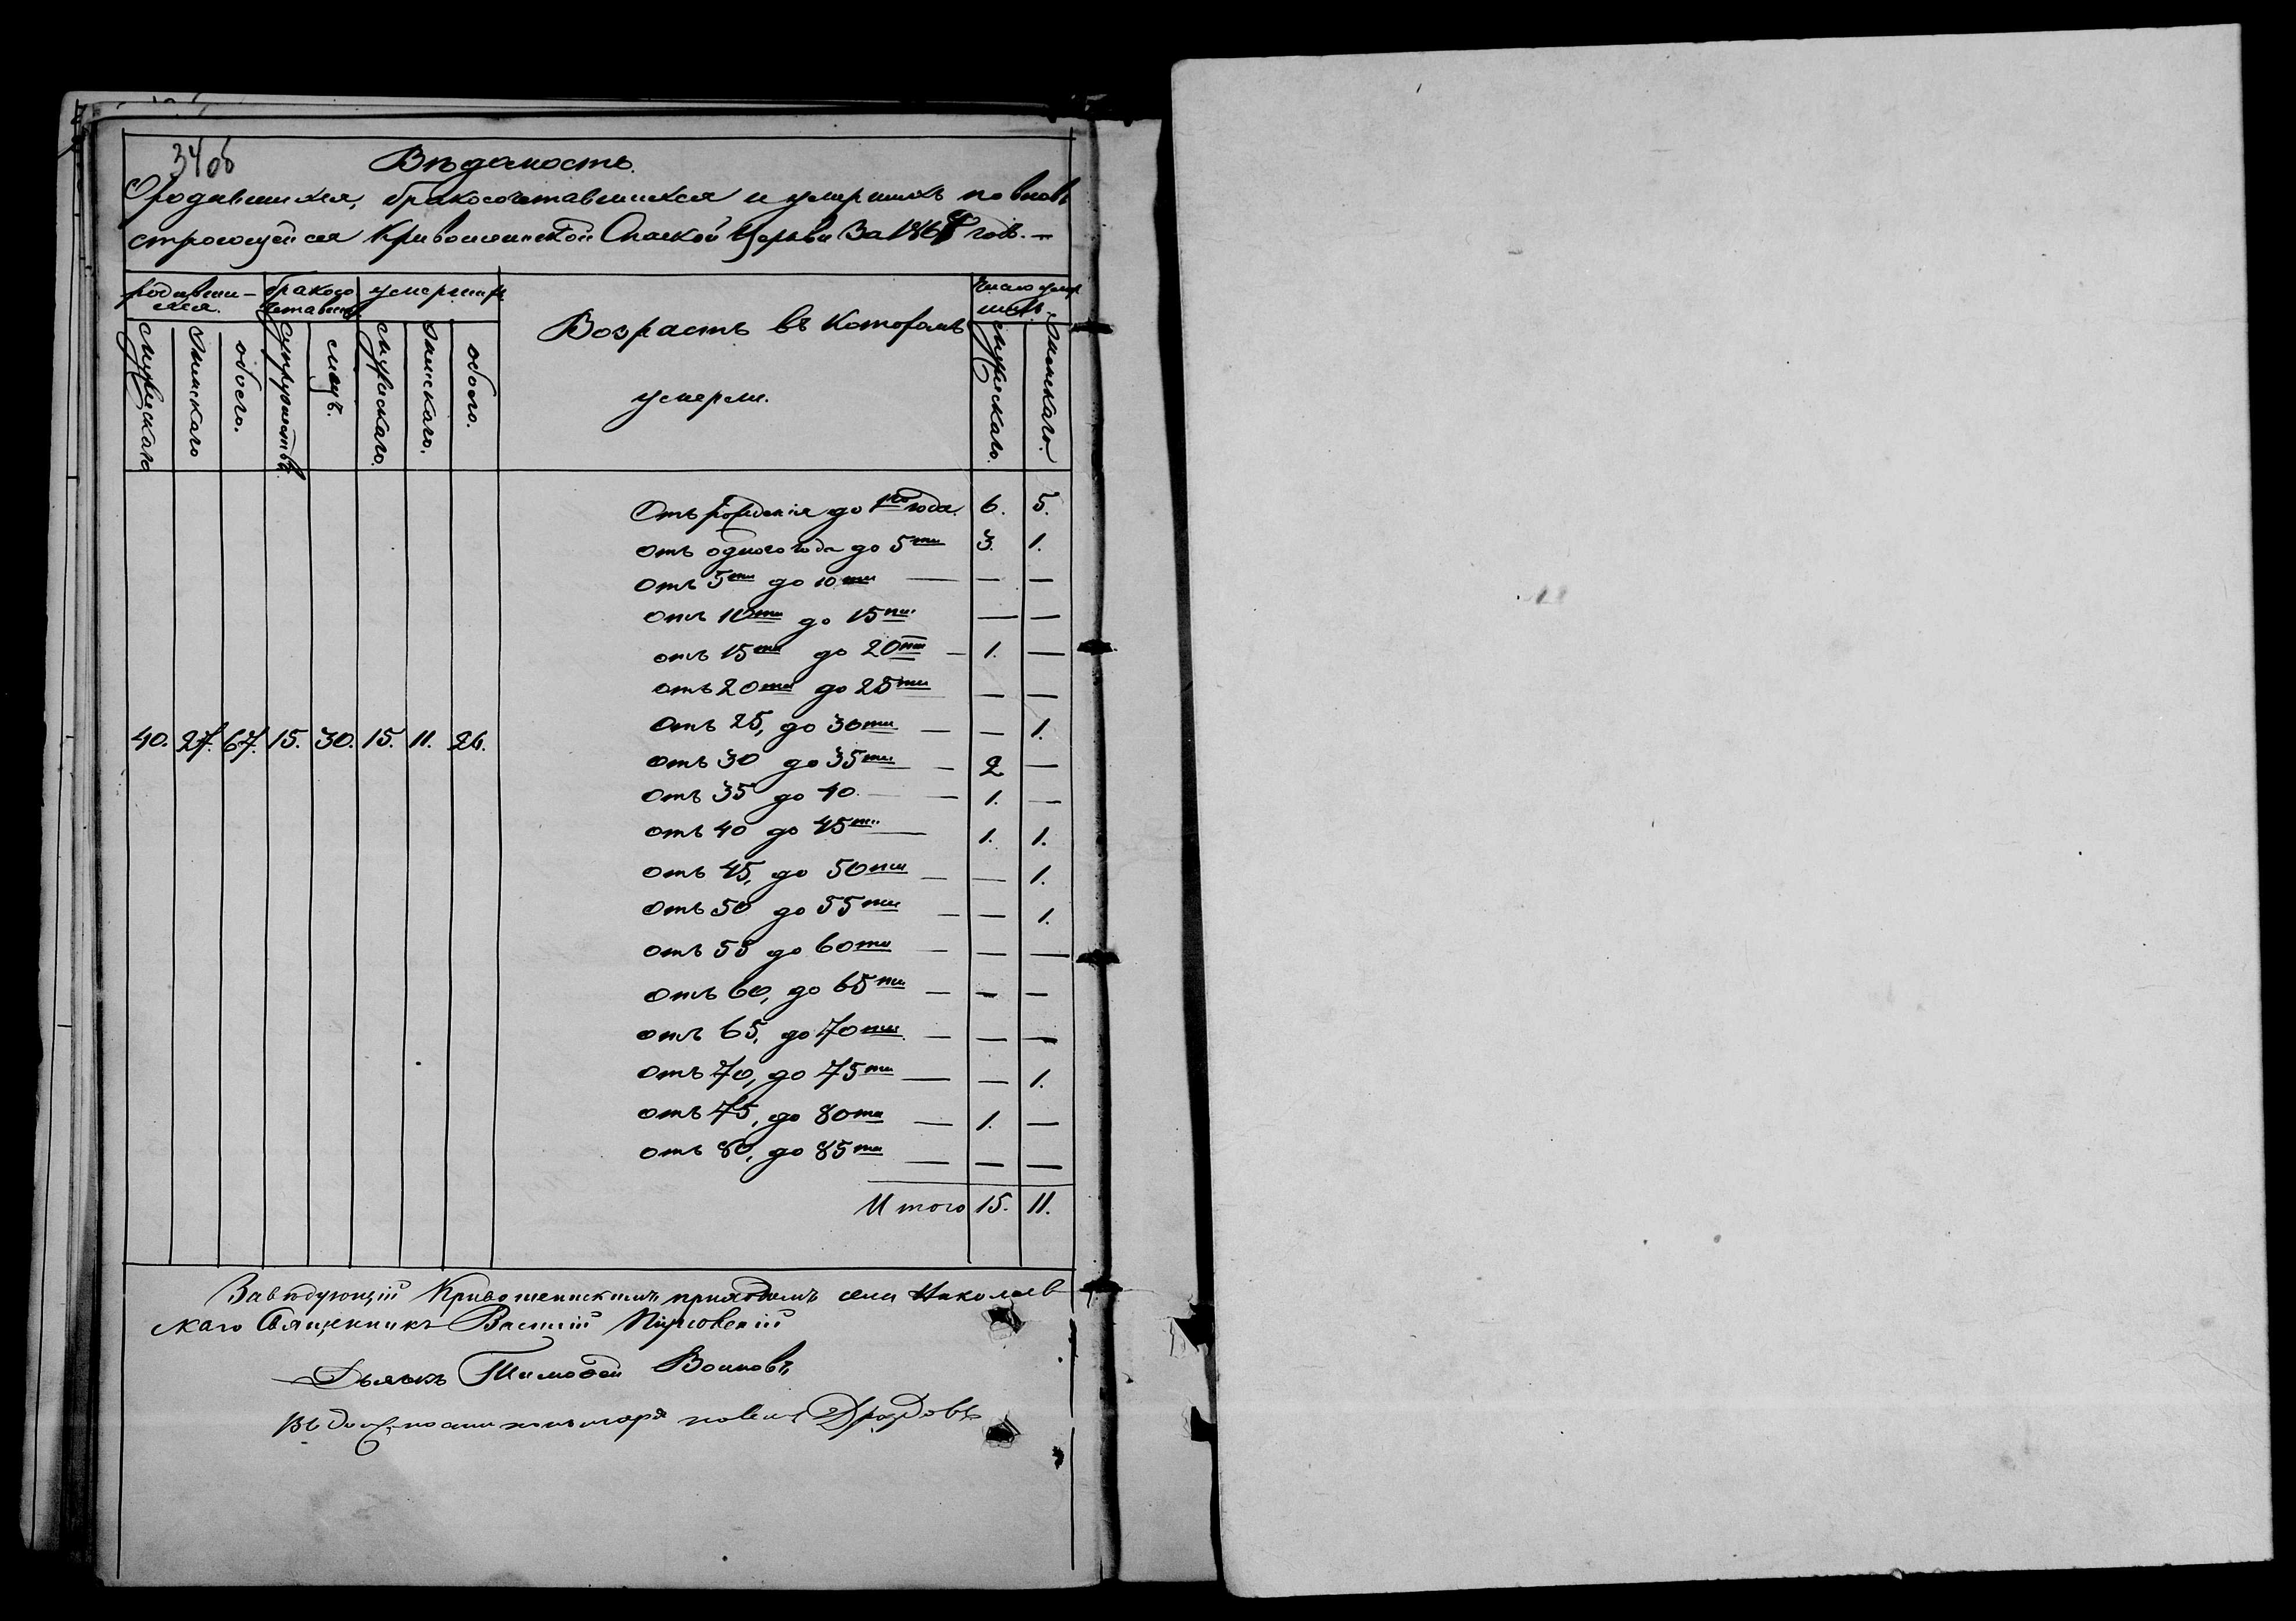 34об
Вѣдомость
О родившихся, бракосочетавшихся и умершихъ по вновь
строющейся Кривошеинской Спаской Церкви За 186 годъ. —
родивши- бракосо умершихъ Число умер
хся. четавших шихъ.
Возрастъ въ которомъ
умерли.
мужескаго женскаго обоего. супружествъ лицъ. мужескаго. женскаго. обоего. мужескаго. женскаго.
Отъ рожденія до 1го года. 6. 5.
отъ одного года до 5ти 3. 1.
отъ 5ти до 10ти — — —
отъ 10ти до 15ти — —
отъ 15ти до 20ти — 1. —
отъ 20ти до 25ти — —
отъ 25, до 30ти — — 1.
40. 27. 67. 15. 30. 15. 11. 26.
отъ 30 до 35ти — 2 —
отъ 35 до 40. — — 1. —
отъ 40 до 45ти — 1. 1.
отъ 45, до 50ти — — 1.
отъ 50 до 55ти — — 1.
отъ 55 до 60ти — — —
отъ 60, до 65ти — — —
отъ 65, до 70ти — — —
отъ 70, до 75ти — — 1.
отъ 75, до 80ти — 1. —
отъ 80, до 85ти — — —
Итого 15. 11.
Завѣдующій Кривошеинскимъ приходомъ села Николаев
скаго Священникъ Василій
Дьякъ Тимофей Воиновъ
Въ должности пономаря Дроздовъ